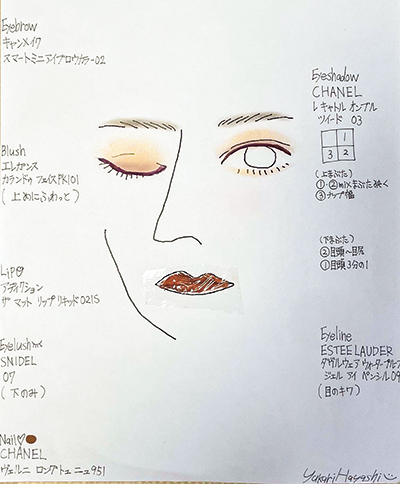 Eyebrow
キャンメイク
スマートミニアイブロウカラー02
Blush
エレガンス
カランドゥ フェイス PK101
(上めにふわっと)
LiP
アディクション
ザ マット リップ リキッド 021S
Eyelush
SNIDEL
07
(下のみ)
Nail♡
CHANEL
ヴェルニ ロング トゥニュ 951
Eyeshadow
CHANEL
レ キャトル オンブル
ツイード 03
1
3 2
(上まぶた)
①・②mixまぶた全く
③ナップ幅
(下まぶた)
②目頭〜目尻
①目頭3分の1
Eyeline
ESTEE LAUDER
ダブル ウェア ウォータープルーフ
ジェル アイ ペンシル 09
(目のキワ)
Yukari Hayashi